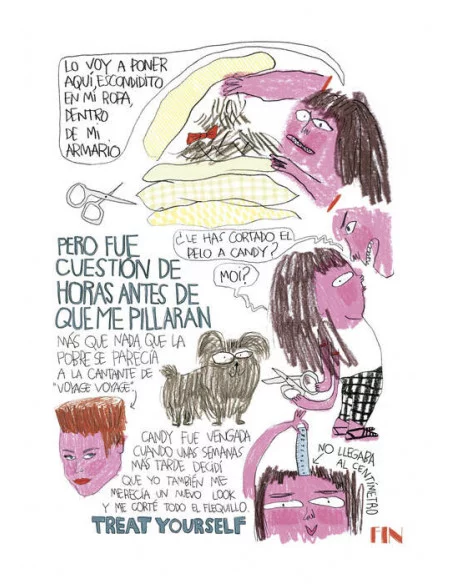 LO VOY A PONER
AQUÍ, ESCONDIDITO
EN MI ROPA,
DENTRO
DE MI
ARMARIO
¿LE HAS CORTADO EL
PELO A CANDY?
MOI?
PERO FUE
CUESTIÓN DE
HORAS ANTES DE
QUE ME PILLARAN
MÁS QUE NADA QUE LA
POBRE SE PARECÍA
A LA CANTANTE DE
"VOYAGE VOYAGE"
CANDY FUE VENGADA
CUANDO UNAS SEMANAS
MÁS TARDE DECIDÍ
QUE YO TAMBIÉN ME
MERECÍA UN NUEVO LOOK
Y ME CORTÉ TODO EL FLEQUILLO.
TREAT YOURSELF
NO LLEGABA
AL CENTÍMETRO
FIN